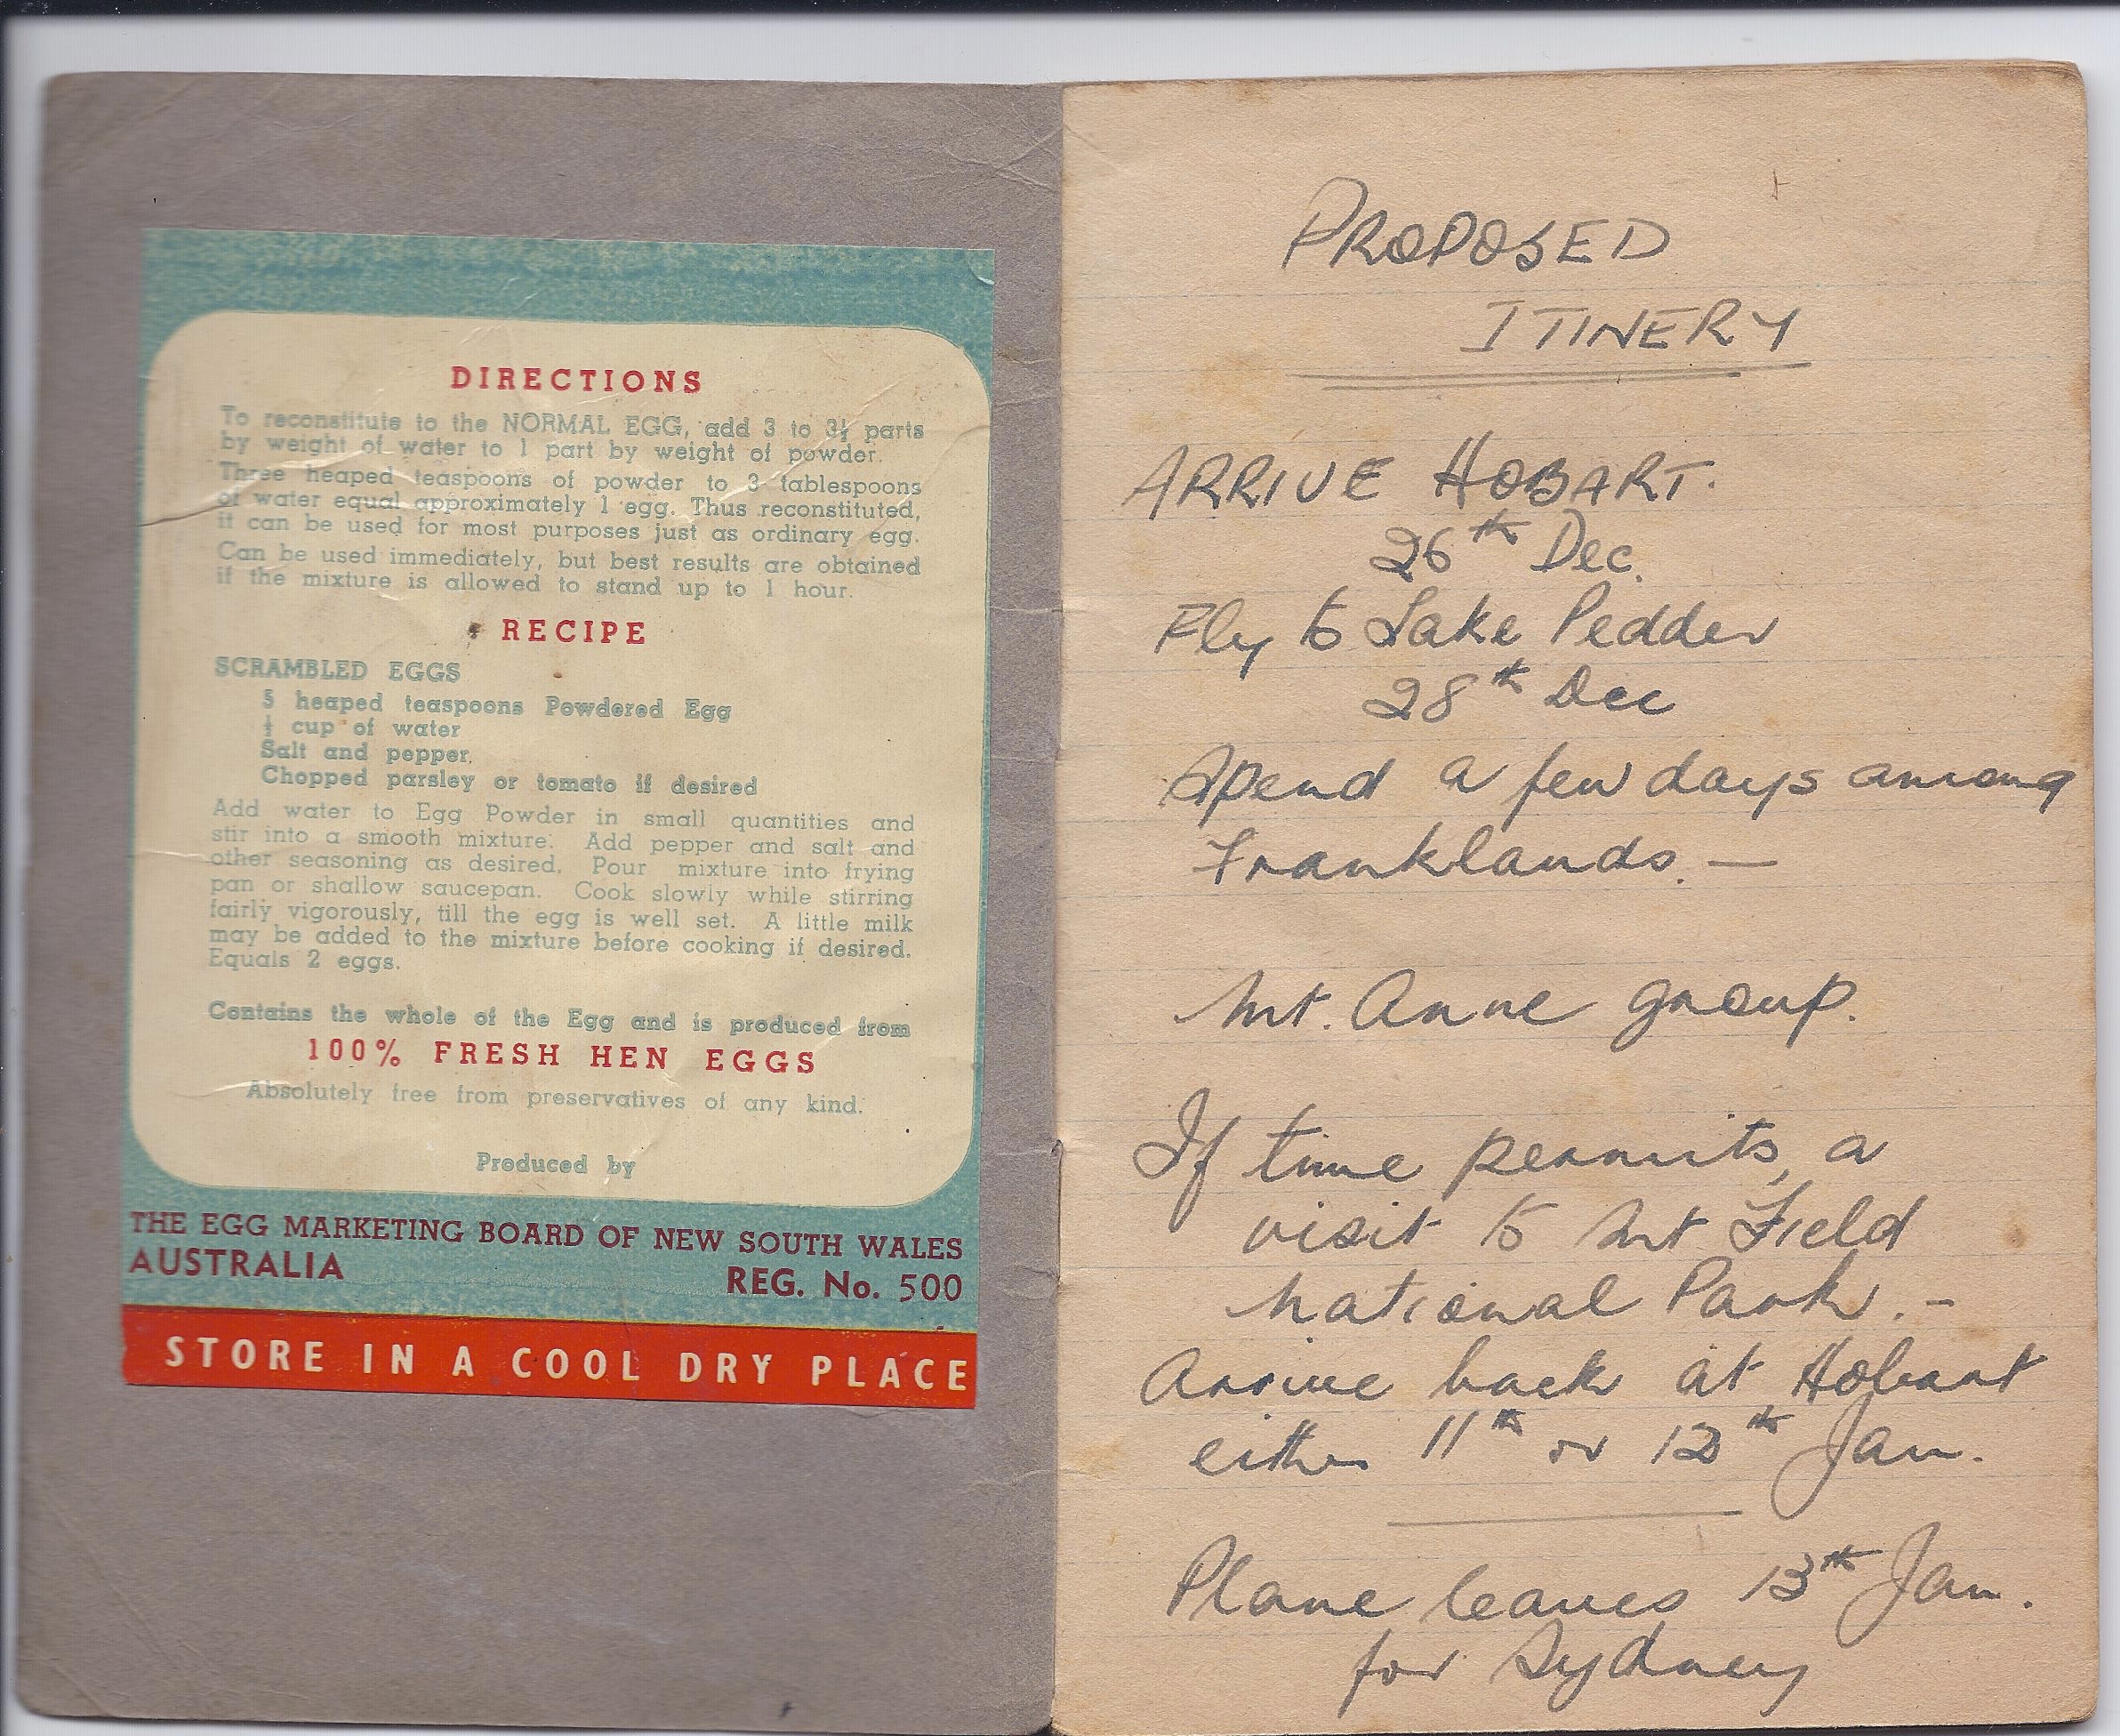 DIRECTIONS
To reconstitute to the NORMAL EGG, add 3 to 3½ parts
by weight of water to 1 part by weight of powder.
Three heaped teaspoons of powder to 3 tablespoons
of water equal approximately 1 egg. Thus reconstituted,
it can be used for most purposes just as ordinary egg.
Can be used immediately, but best results are obtained
if the mixture is allowed to stand up to 1 hour.
RECIPE
SCRAMBLED EGGS
5 heaped teaspoons Powdered Egg
cup of water
Salt and pepper,
Chopped parsley or tomato if desired
Add water to Egg Powder in small quantities and
stir into a smooth mixture. Add pepper and salt and
other seasoning as desired. Pour mixture into frying
pan or shallow saucepan. Cook slowly while stirring
fairly vigorously, till the egg is well set. A little milk
may be added to the mixture before cooking if desired.
Equals 2 eggs.
Contains the whole of the Egg and is produced from
100% FRESH HEN EGGS
Absolutely free from preservatives of any kind.
Produced by
THE EGG MARKETING BOARD OF NEW SOUTH WALES
AUSTRALIA REG. No. 500
STORE IN A COOL DRY PLACE
PROPOSED
ITINERY
ARRIVE HOBART.
26th Dec.
Fly to Lake Pedder
28th Dec
Spend a few days among
Franklands. —
Mt. Anne group.
If time permits, a
visit to Mt Field
National Park. -
Arrive back at Hobart
either 11th or 12th Jan.
Plane leaves 13th Jan.
for Sydney